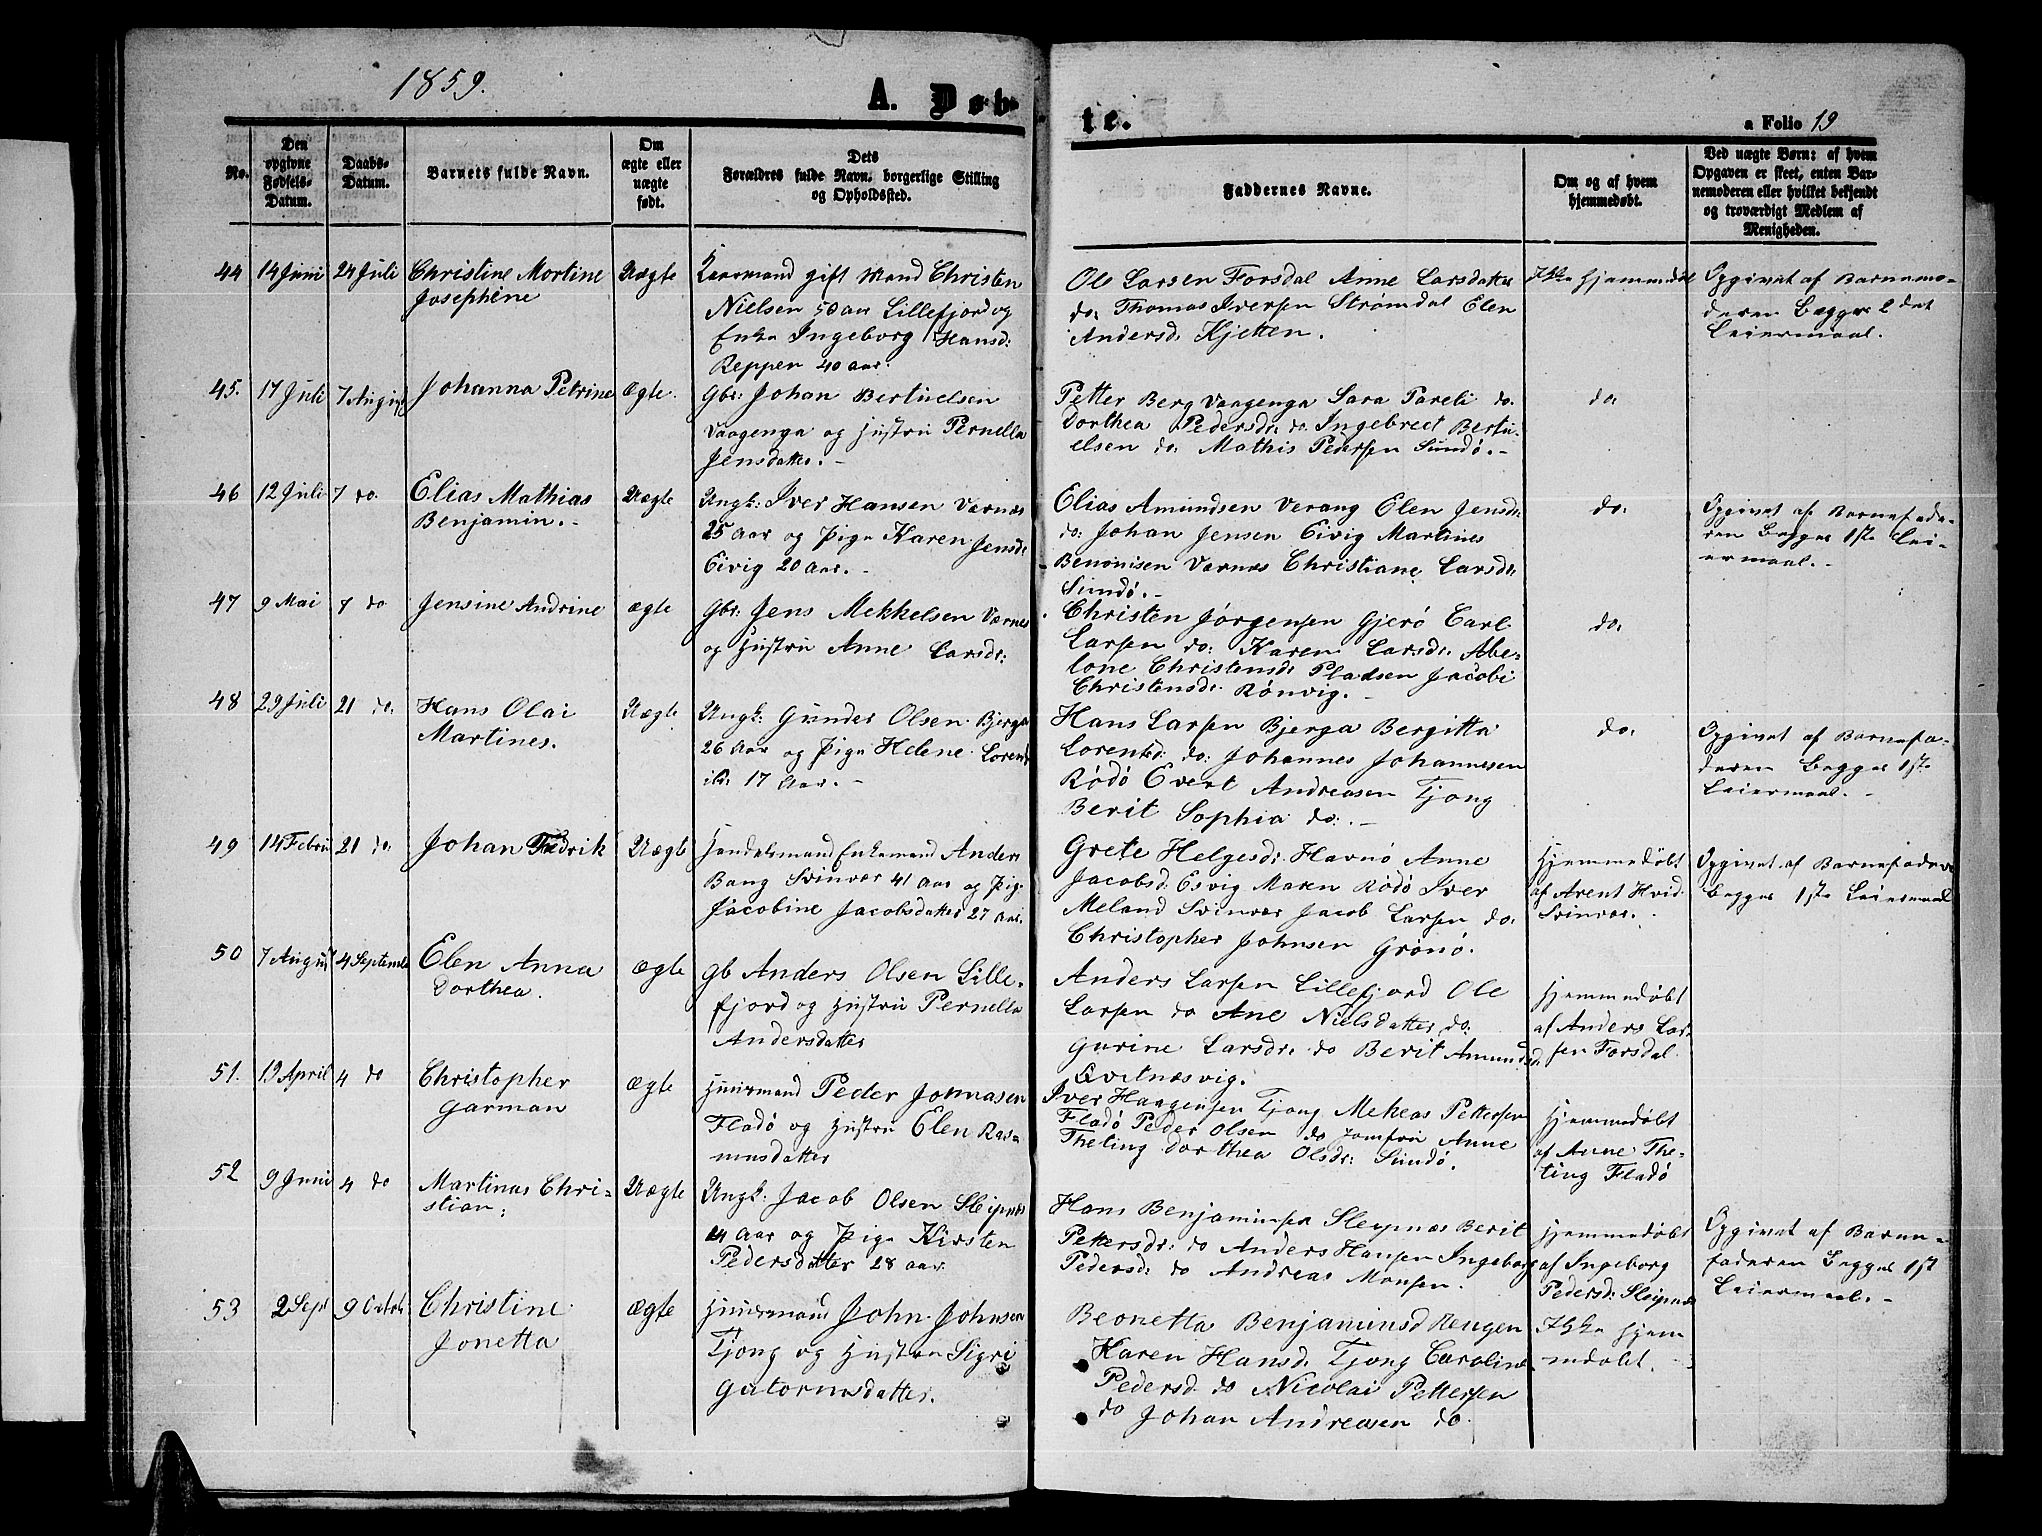 1859.
A. Døb-
te.
a Folio 19
No.
Den
opgivne
Fødsels-
Datum.
Daabs-
Datum.
Barnets fulde Navn.
Om
ægte eller
uægte
født.
Dets
Forældres fulde Navn, borgerlige Stilling
og Opholdssted.
Faddernes Navne.
Om og af hvem
hjemmedøbt.
Ved uægte Børn: af hvem
Opgaven er skeet, enten Bar-
nemoderen eller hvilket bekjendt
og troværdigt Medlem af
Menigheden.
44 14 Juni 24 Juli Christine Mortine
Josephine
Uægte
Kaarmand gift Mand Christen
Nielsen 50 aar Lillefjord og
Enke Ingeborg Hansd:
Reppen 40 aar.
Ole Larsen Forsdal Anne Larsdatter
do: Thomas Iversen Strømdal Elen
Andersd: Kjetten.
Ikke hjemmedøbt
Opgivet af Barnemo-
deren Begges 2det
Leiermaal.
45. 17 Juli 7 August Johanna Petrine ægte.
Gbr: Johan Bertuelsen
Vaagenga og Hustru Pernella
Jensdatter.-
Petter Berg Vaagenga Sara Pareli do.
Dorthea Pedersdr: do Ingebret Bertu-
elsen do: Mathis Pedersen Sundö.-
do:
46 12 Juli 7 do. Elias Mathias
Benjamin.-
Uægte
Ungk: Iver Hansen Værnæs
25 Aar og Pige Karen Jensdr
Eivig 20 Aar.-
Elias Amundsen Verang Elen Jensdr:
do: Johan Jensen Eivig Martines
Benonisen Værnæs Christiane Larsdr:
Sundö.-
do:
Opgivet af Barnefade-
ren Begges 1ste Lei-
ermaal.-
47 9 Mai 7 do Jensine Andrine ægte
Gbr: Jens Mekkelsen Værnes
og Hustru Anne Larsdr:
Christen Jørgensen Gjerö Carl
Larsen do: Karen Larsdr: Abe-
lone Christensdr Pladsen Jacobi
Christensdr: Rönvig.-
do:
48 29 Juli 21 do: Hans Olai
Martines.
Uægte
Ungk: Gunder Olsen Bjerga
26 Aar og Pige Helene Lorents
dr: 17 Aar.-
Hans Larsen Bjerga Bergitta
Lorentsd: do: Johannes Johannesen
Rödö Evert Andreasen Tjong
Berit Sophia do:.-
do:
Opgivet af Barnefa-
deren Begges 1ste
Leiermaal.-
49 14 Febru 21 do Johan Fredrik Uægte
Handelsmand Enkemand Anders
Bang Svinvær 41 aar og Pige
Jacobine Jacobsdatter 27 Aar.
Grete Helgesdr: Havnö Anne
Jacobsd: Esvig Maren Rödö Iver
Meland Svinvær Jacob Larsen do:
Christopher Johnsen Grönö.
Hjemmedøbt
af Arent Hvid
Svinvær.
Opgivet af Barnefaderen
Begges 1ste Leiermaal
50 7 August 4 Septemb Elen Anna
Dorthea.
ægte
Gb Anders Olsen Lille-
fjord og Hustru Pernella
Andersdatter
Anders Larsen Lillefjord Ole
Larsen do Ane Nielsdatter do:
Gurine Larsdr: do Berit Amundsd:
Qvitnæsvig.
Hjemmedøbt
af Anders Lar-
sen Forsdal.
51. 19 April 4 do Christopher
Garman
ægte
Huusmand Peder Jonnasen
Fladö og Hustru Elen Ras-
musdatter
Iver Haagensen Tjong Mekeas Pettersen
Fladö Peder Olsen do Jomfru Anne
Theting Dorthea Olsdr: Sundö.
Hjemmedøbt
af Anne The-
ting Fladö
52 9 Juni 4 do Martinus Chri-
stian:
Uægte
Ungk: Jacob Olsen Sleipnæs
24 Aar og Pige Kirsten
Pedersdatter 28 aar
Hans Benjaminsen Sleipnæs Berit
Pettersdr: do Anders Hansen Ingeborg
Pedersd: do Andreas Monsen.
Hjemmedøbt
af Ingeborg
Pedersd: Sleipnæs
Opgivet af Barne-
faderen Begges 1ste
Leiermaal.-
53 2 Sept 9 Octob Christine
Jonetta
ægte
Huusmand John Johnsen
Tjong og Hustru Sigri
Gutormsdatter.
Beonetta Benjaminsd Rengen
Karen Hansd: Tjong Caroline
Pedersd do Nicolai Pettersen
do Johan Andreasen do.
Ikke hjem
medøbt.